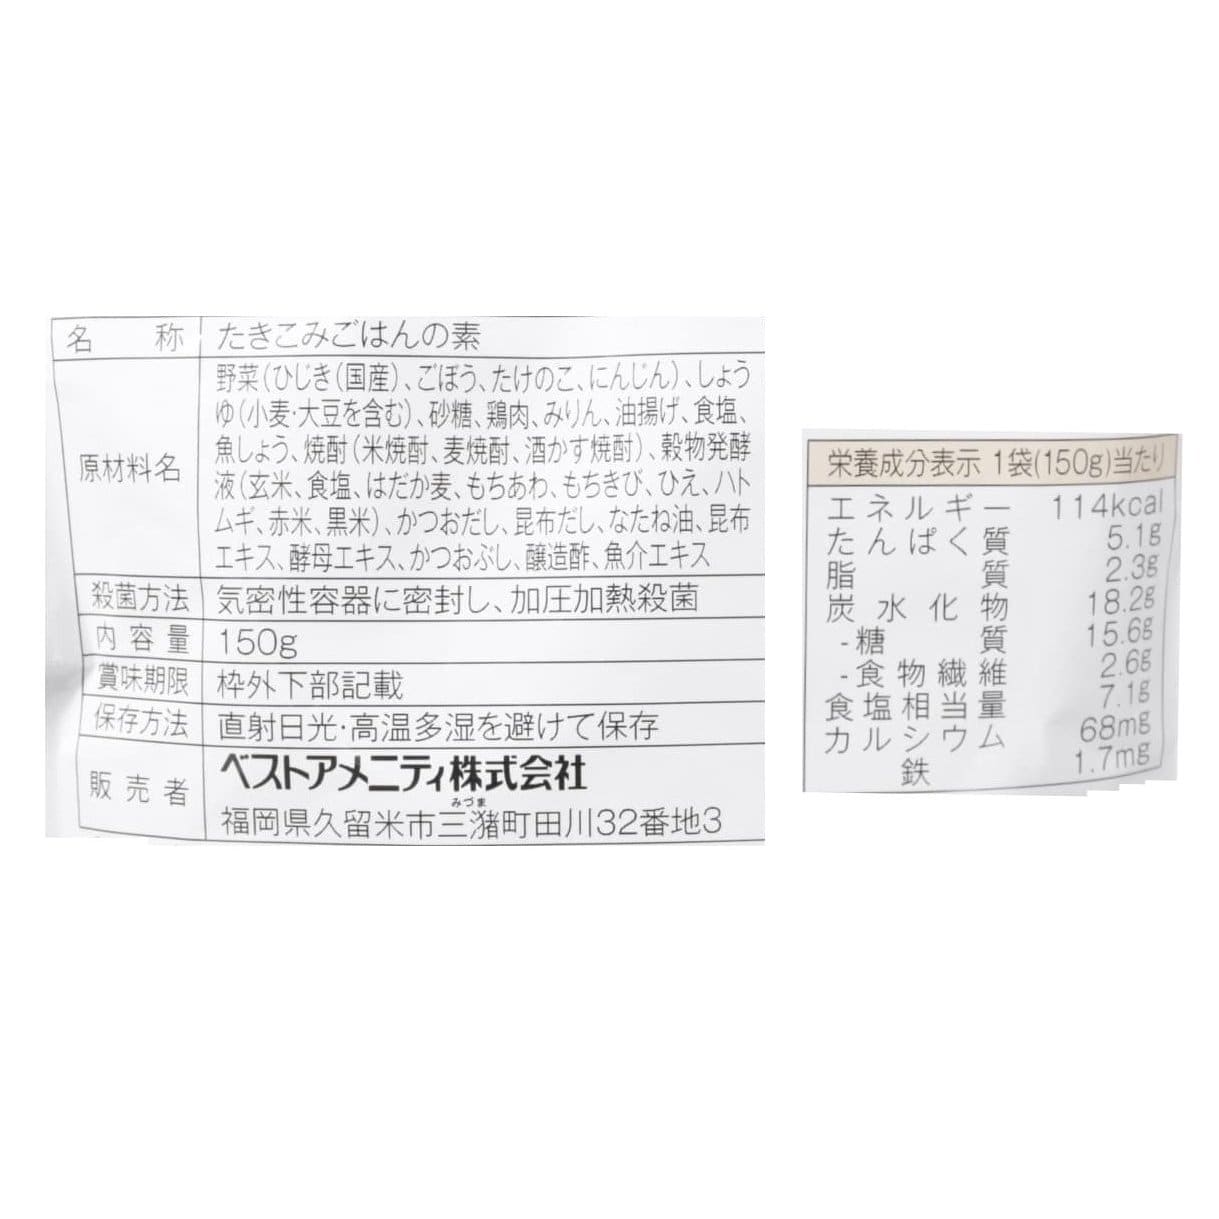 名称 たきこみごはんの素
原材料名
野菜(ひじき(国産)、ごぼう、たけのこ、にんじん)、しょう
ゆ(小麦・大豆を含む)、砂糖、鶏肉、みりん、油揚げ、食塩、
魚しょう、焼酎(米焼酎、麦焼酎、酒かす焼酎)、穀物発酵
液(玄米、食塩、はだか麦、もちあわ、もちきび、ひえ、ハト
ムギ、赤米、黒米)、かつおだし、昆布だし、なたね油、昆布
エキス、酵母エキス、かつおぶし、醸造酢、魚介エキス
殺菌方法 気密性容器に密封し、加圧加熱殺菌
内容量 150g
賞味期限 枠外下部記載
保存方法 直射日光・高温多湿を避けて保存
販売者
ベストアメニティ株式会社
みづま
福岡県久留米市三潴町田川32番地3
栄養成分表示 1袋(150g)当たり
エネルギー 114kcal
たんぱく質 5.1g
脂質 2.3g
炭水化物 18.2g
-糖質 15.6g
-食物繊維 2.6g
食塩相当量 7.1g
カルシウム 68mg
鉄 1.7mg